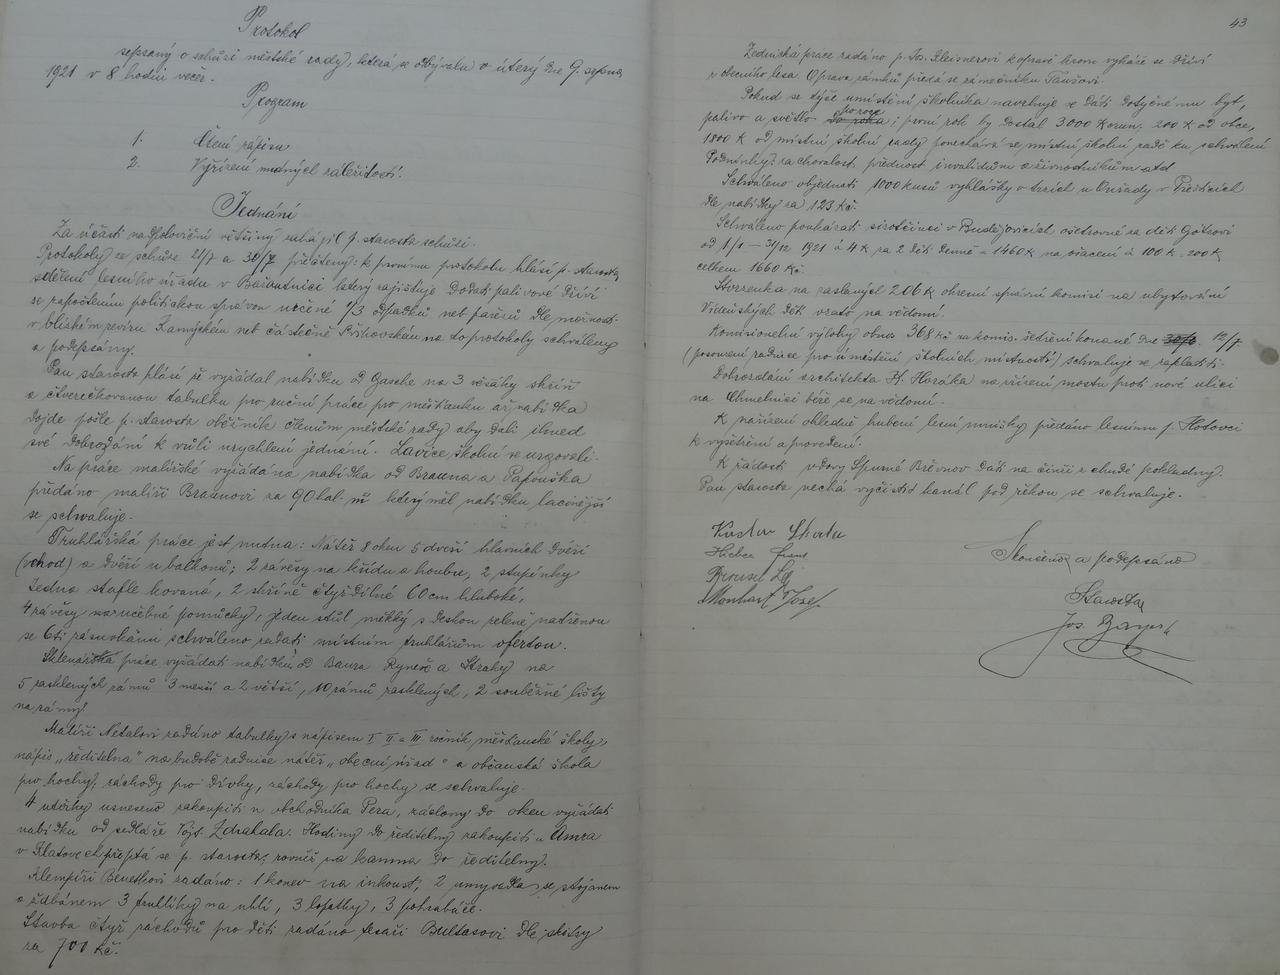 Protokol
sepsaný o schůzi městské rady, která se odbývala v úterý dne 9. srpna
1921 v 8 hodin večer.
Program
1. Čtení zápisu
2. Vyřízení nutných záležitostí.
Jednání
Za účasti nadpoloviční většiny zahájil p. starosta schůzi.
Protokoly ze schůze 21/7 a 30/7 přečteny: k prvnímu protokolu hlásí p. starosta
sdělení lesního úřadu v který zajišťuje dodati palivové dříví
se započtením politickou správou určené 1/3 odpadků neb pařezů dle možnosti
v blízkém revíru Kamýckém neb částečně na to protokoly schváleny
a podepsány.
Pan starosta hlásí že vyžádal nabídku od na 3 věšáky skříň
a čtverečkovanou tabulku pro ruční práce pro měšťanku až nabídka
dojde pošle p. starosta oběžník členům městské rady aby dali ihned
své dobrozdání k vůli urychlení jednání. Lavice školní se urgovali.
Na práce malířské vyžádána nabídka od Brauna a Papouška
předáno malíři Braunovi za 90 hal. m² který měl nabídku lacinější
se schvaluje.
Truhlářská práce jest nutna: Nátěr 8 oken 5 dveří hlavních dveří
(vchod) a dveří u balkonů; 2 závěsy na křídu a houbu, 2 stupínky
jedna štafle kovaná, 2 skříně čtyřdílné 60 cm hluboké,
4 závěsy na učebné pomůcky, jeden stůl měkký s deskou zeleně natřenou
se 6ti zásuvkami schváleno zadati místním truhlářům ofertou.
Sklenářská práce vyžádati nabídku od Baura Ryneše a Strahy na
5 zasklených rámů 3 menší a 2 větší, 10 rámů zasklených, 2 souběžné lišty
na rámy.
Malíři Netalovi zadáno tabulky s nápisem I II a III ročník měšťanské školy,
nápis „ředitelna" na budově radnice nátěr „obecní úřad" a občanská škola
pro hochy, záchody pro dívky, záchody pro hochy se schvaluje.
4 utěrky usneseno zakoupiti u obchodníka Pera, záclony do oken vyžádati
nabídku od sedláře Vojt. Zdrahala. Hodiny do ředitelny zakoupiti u
v Klatovech přeptá se p. starosta, rovněž na kamna do ředitelny.
Klempíři Benetkovi zadáno: 1 konev na inkoust, 2 umyvadla se stojanem
a džbánem 3 truhlíky na uhlí, 3 lopatky, 3 pohrabáče.
Stavba čtyř záchodů pro děti zadáno tesaři Bultasovi dle skizzy
za 701 Kč.
43
Zednická práce zadáno p. Kleisnerovi k opravě krovu vykáže se dříví
z obecního lesa. Oprava zámků předá se zámečníku
Pokud se týče umístění školníka navrhuje se dáti dotyčnému byt,
palivo a světlo do roka po roce; první rok by dostal 3000 korun. 200 K od obce,
1800 K od místní školní rady ponechává se místní školní radě ku schválení
Podmínky: zachovalost, přednost invalidům a živnostníkům atd
Schváleno objednati 1000 kusů vyhlášky o trzích u Onřady v Přešticích
dle nabídky za 123 Kč.
Schváleno poukázati sirotčinci v Budějovicích ošetrovné za děti
od 1/1 – 31/12 1921 á 4 K za 2 děti denně = 1460 K na ošacení á 100 K. 200 K
celkem 1660 Kč.
Stvrzenka na zaslaných 206 K okresní správní komisi na ubytování
Vídeňských dětí vzato na vědomí.
Komisionelní výlohy obnos 368 Kč za komis. šetření konané dne 12/7
(posouzení radnice pro umístění školních místností) schvaluje se zaplatiti.
Dobrozdání architekta H. Horáka na zřízení mostu proti nové ulici
na Chmelnici béře se na vědomí.
K nařízení ohledně hubení lesní mnišky předáno lesnímu p. Hotovci
k vyšetření a provedení.
K žádosti vdovy Spurné Břevnov dáti na činži z chudé pokladny.
Pan starosta nechá vyčistit kanál pod řekou se schvaluje.
Skončeno a podepsáno
Starosta
Monhart Josef.